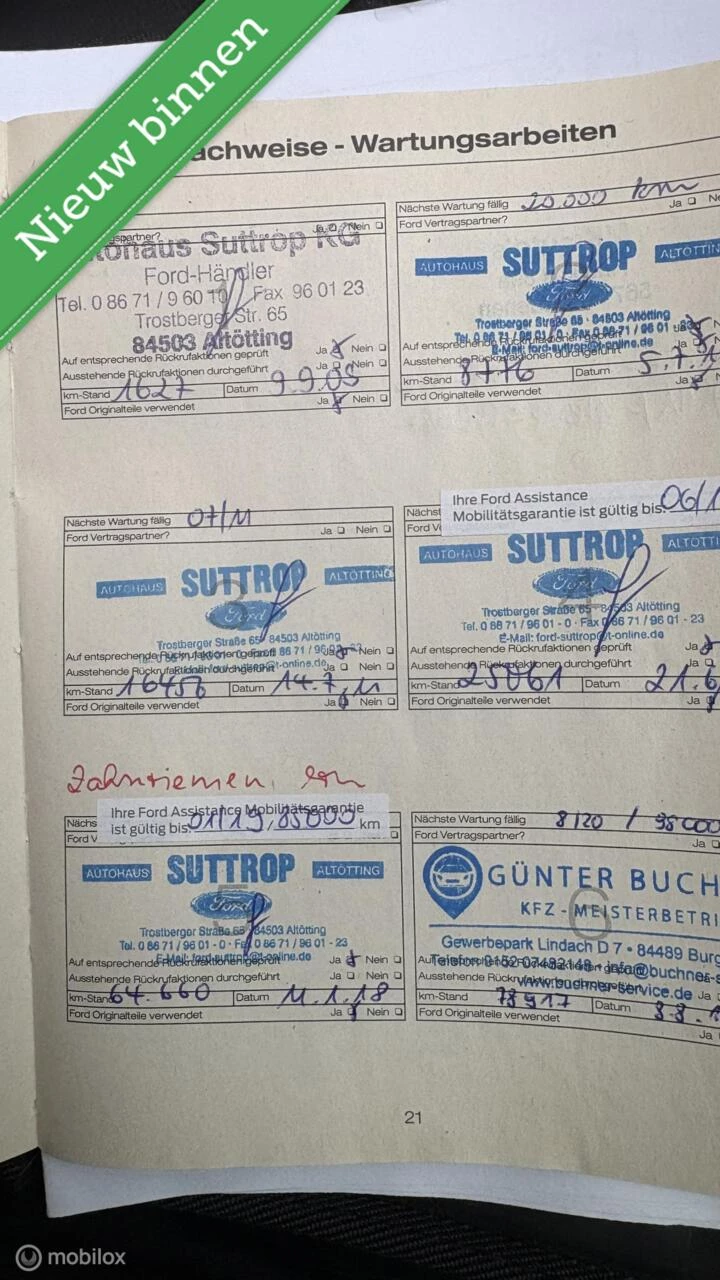 Nieuw binnen
achweise - Wartungsarbeiten
spartner? Ja Nein
tohaus Suttrop KG
Ford-Händler
Tel. 0 86 71 / 9 60 10 Fax 96 01 23
Trostberger Str. 65
84503 Altötting
Auf entsprechende Rückrufaktionen geprüft Ja Nein
Ausstehende Rückrufaktionen durchgeführt Ja Nein
km-Stand 1627 Datum 9.9.09
Ford Originalteile verwendet Ja Nein
Nächste Wartung fällig 20.000 km
Ford Vertragspartner? Ja Ne
AUTOHAUS SUTTROP ALTÖTTIN
Ford
Trostberger Straße 65 · 84503 Altötting
Tel. 0 86 71 / 96 01 - 0 · Fax 0 86 71 / 96 01 - 23
E-Mail: ford-suttrop@t-online.de
Auf entsprechende Rückrufaktionen geprüft Ja N
Ausstehende Rückrufaktionen durchgeführt Ja
km-Stand 8776 Datum 5.7.1
Ford Originalteile verwendet Ja
Nächste Wartung fällig 07/11
Ford Vertragspartner? Ja Nein
3
AUTOHAUS SUTTROP ALTÖTTING
Ford
Trostberger Straße 65 · 84503 Altötting
Auf entsprechende Rückrufaktionen geprüft Ja Nein
Ausstehende Rückrufaktionen durchgeführt Ja Nein
km-Stand 16456 Datum 14.7.11
Ford Originalteile verwendet Ja Nein
Ihre Ford Assistance
Mobilitätsgarantie ist gültig bis: 06/1
Nächst
Ford V
4
AUTOHAUS SUTTROP ALTÖTTI
Ford
Trostberger Straße 65 · 84503 Altötting
Tel. 0 86 71 / 96 01 - 0 · Fax 0 86 71 / 96 01 - 23
E-Mail: ford-suttrop@t-online.de
Auf entsprechende Rückrufaktionen geprüft Ja
Ausstehende Rückrufaktionen durchgeführt Ja
km-Stand 25061 Datum 21.6
Ford Originalteile verwendet Ja
Zahnriemen
Ihre Ford Assistance Mobilitätsgarantie
ist gültig bis: 01/19, 85000 km
Nächs
Ford V
5
AUTOHAUS SUTTROP ALTÖTTING
Ford
Trostberger Straße 65 · 84503 Altötting
Tel. 0 86 71 / 96 01 - 0 · Fax 0 86 71 / 96 01 - 23
E-Mail: ford-suttrop@t-online.de
Auf entsprechende Rückrufaktionen geprüft Ja Nein
Ausstehende Rückrufaktionen durchgeführt Ja Nein
km-Stand 64.660 Datum 11.1.18
Ford Originalteile verwendet Ja Nein
Nächste Wartung fällig 8/20 / 98000
Ford Vertragspartner? Ja
6
GÜNTER BUCH
KFZ - MEISTERBETRI
Gewerbepark Lindach D 7 · 84489 Burg
Telefon 0152 07482148 · info@buchner-s
www.buchner-service.de
Ausstehende Rückrufaktionen Ja
km-Stand 78917 Datum 8.8.1
Ford Originalteile verwendet Ja
21
mobilox